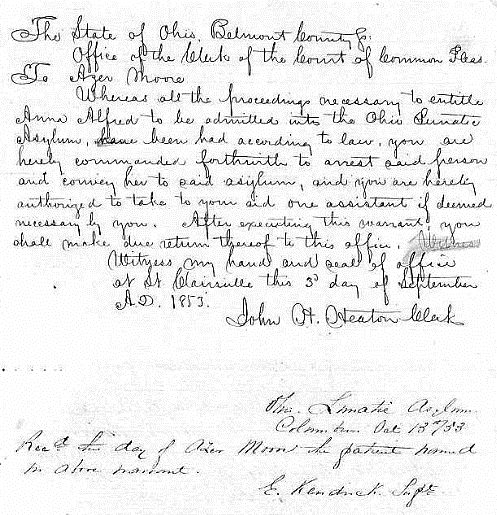 The State of Ohio, Belmont County SS:
Office of the Clerk of the Court of Common Pleas.
To Azer Moore
Whereas all the proceedings necessary to entitle
Anna Alfred to be admitted into the Ohio Lunatic
Asylum, have been had according to law, you are
hereby commanded forthwith to arrest said person
and convey her to said asylum, and you are hereby
authorized to take to your aid one assistant if deemed
necessary by you. After executing this warrant you
shall make due return thereof to this office. Witness
Witness my hand and seal of office
at St Clairsville this 3d day of September
A.D. 1853.
John H. Heaton Clerk
Ohio Lunatic Asylum
Columbus Oct 13th/53
Recd this day of Azer Moore the patient named
in above warrant.
E. Kendrick Supt